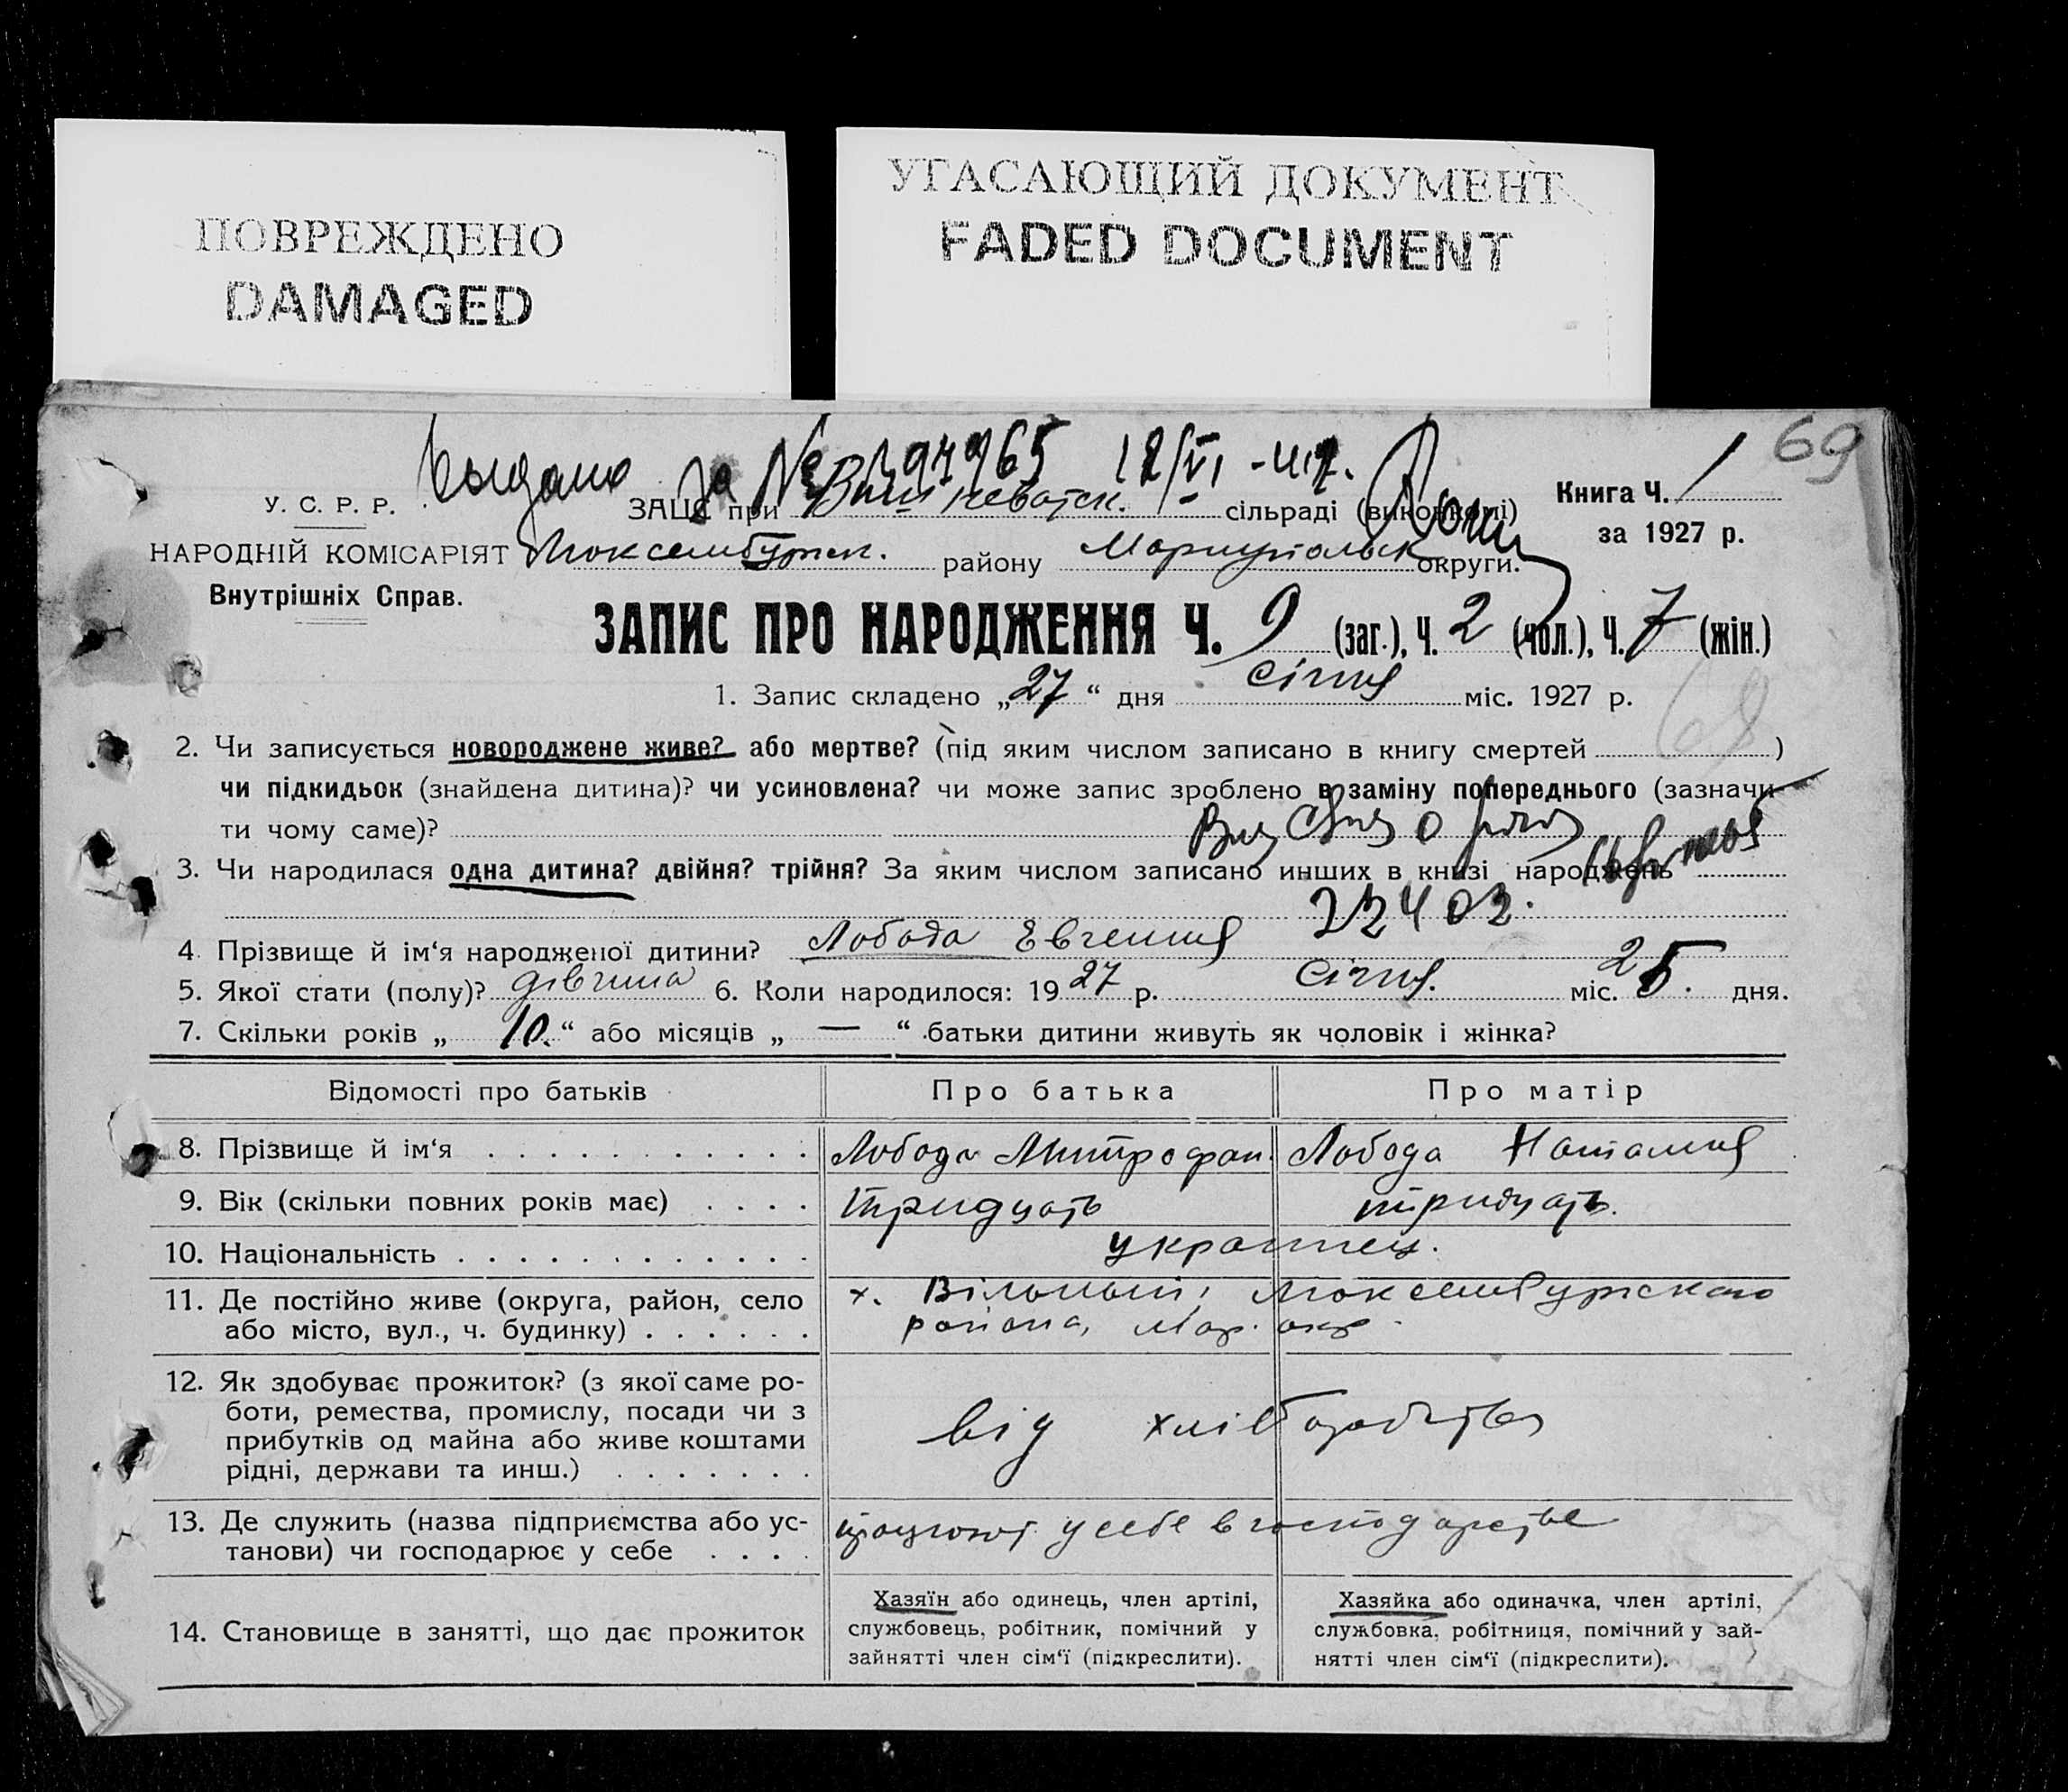 ПОВРЕЖДЕНО
DAMAGED
УГАСАЮЩИЙ ДОКУМЕНТ
FADED DOCUMENT
69
Выдано за №
У. С. Р. Р.
ЗАЦС при сільраді (виконкомі)
Книга Ч. 1
за 1927 р.
НАРОДНІЙ КОМІСАРІЯТ Люксембургск. району Мариупольск округи.
Внутрішніх Справ.
ЗАПИС ПРО НАРОДЖЕННЯ Ч. 9 (заг.), Ч. 2 (чол.), Ч. 7 (жін.)
1. Запис складено „27“ дня січня міс. 1927 р.
68
2. Чи записується новороджене живе? або мертве? (під яким числом записано в книгу смертей )
чи підкидьок (знайдена дитина)? чи усиновлена? чи може запис зроблено в заміну попереднього (зазначи-
ти чому саме)?
3. Чи народилася одна дитина? двійня? трійня? За яким числом записано инших в книзі народжень
22402.
4. Прізвище й ім‘я народженої дитини? Лобода Евгения
5. Якої стати (полу)? дівчина 6. Коли народилося: 1927 р. січня. міс. 25. дня.
7. Скільки років „10.“ або місяців „—“ батьки дитини живуть як чоловік і жінка?
Відомості про батьків Про батька Про матір
8. Прізвище й ім‘я Лобода Митрофан. Лобода Наталия
9. Вік (скільки повних років має) тридцать тридцать.
10. Національність украинец.
11. Де постійно живе (округа, район, село х. Вільный, Люксембургскаго
або місто, вул., ч. будинку) района, Мар. окр.
12. Як здобуває прожиток? (з якої саме ро-
боти, ремества, промислу, посади чи з
прибутків од майна або живе коштами
рідні, держави та инш.)
від хліборобства
13. Де служить (назва підприємства або ус- працюют у себе в господарстве
танови) чи господарює у себе
14. Становище в занятті, що дає прожиток
Хазяїн або одинець, член артілі,
службовець, робітник, помічний у
зайнятті член сім‘ї (підкреслити).
Хазяйка або одиначка, член артілі,
службовка, робітниця, помічний у зай-
нятті член сім‘ї (підкреслити).